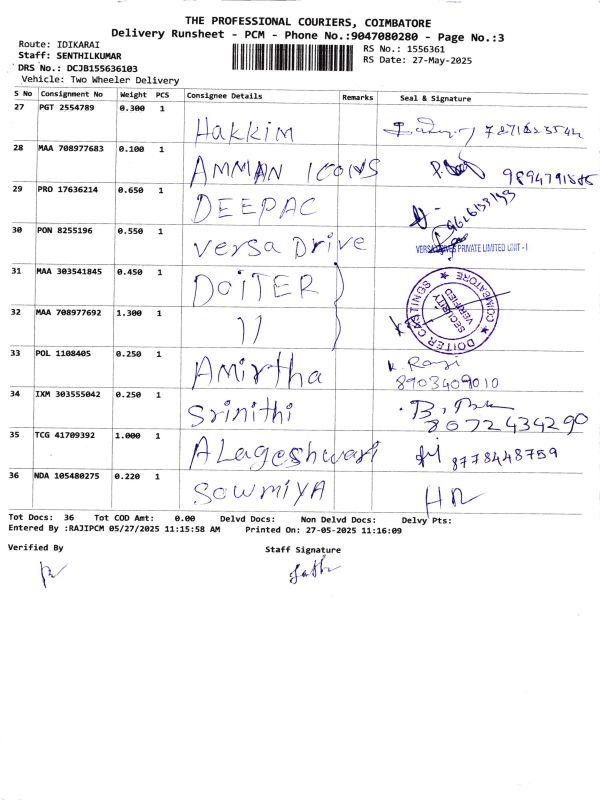 THE PROFESSIONAL COURIERS, COIMBATORE
Delivery Runsheet - PCM - Phone No.:9047080280 - Page No.:3
Route: IDIKARAI
RS No.: 1556361
Staff: SENTHILKUMAR
RS Date: 27-May-2025
DRS No.: DCJB155636103
Vehicle: Two Wheeler Delivery
S No Consignment No Weight PCS Consignee Details Remarks Seal & Signature
27 PGT 2554789 0.300 1 Hakkim
28 MAA 708977683 0.100 1 AMMAN ICONS
29 PRO 17636214 0.650 1 DEEPAC
30 PON 8255196 0.550 1 Versa Drive
PRIVATE LIMITED UNIT - I
31 MAA 303541845 0.450 1 DOITER
DOITER CASTINGS ★ COIMBATORE ★
SECURITY
VERIFIED
32 MAA 708977692 1.300 1 11
33 POL 1108405 0.250 1 Amirtha K. Ravi
8903409010
34 IXM 303555042 0.250 1 Srinithi
8072434290
35 TCG 41709392 1.000 1 ALageshwari 8778448759
36 NDA 105480275 0.220 1 SOWMIYA
Tot Docs: 36 Tot COD Amt: 0.00 Delvd Docs: Non Delvd Docs: Delvy Pts:
Entered By :RAJIPCM 05/27/2025 11:15:58 AM Printed On: 27-05-2025 11:16:09
Verified By
Staff Signature